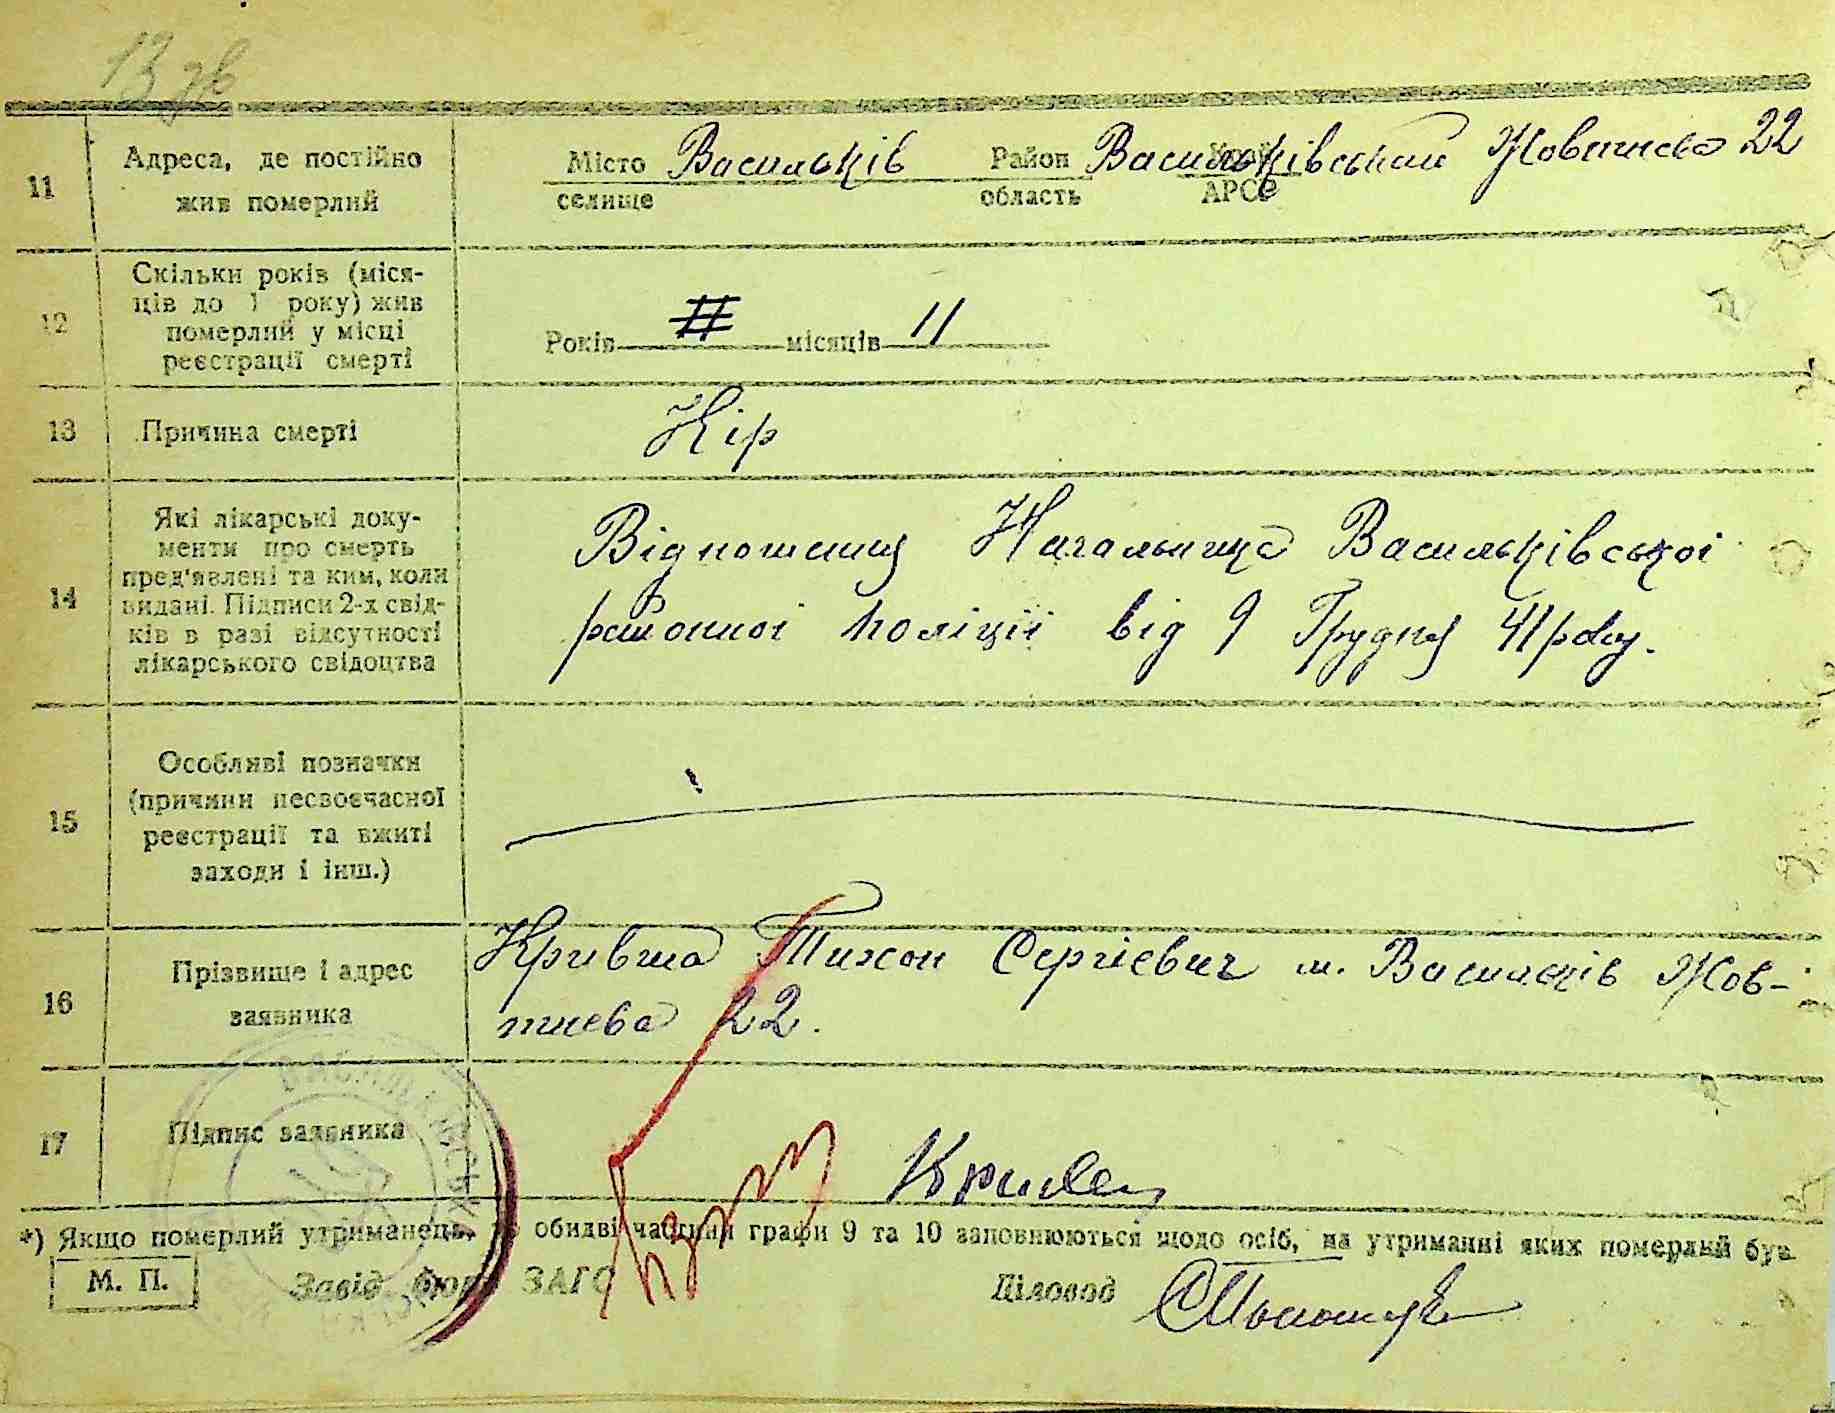 13 зв
11 Адреса, де постійно жив померлий
Місто Васильків Район Васильківський Жовтнева 22
селище область АРСР
12 Скільки років (міся-
ців до 1 року) жив
померлий у місці
реєстрації смерті
Років # місяців 11
13 Причина смерті Кір
14 Які лікарські доку-
менти про смерть
пред'явлені та ким, коли
видані. Підписи 2-х свід-
ків в разі відсутності
лікарського свідоцтва
Відношення Начальника Васильківської
районної поліції від 9 Грудня 41 року.
15 Особливі позначки
(причини несвоєчасної
реєстрації та вжиті
заходи і інш.)
16 Прізвище і адрес
заявника
Кривша Тихон Сергієвич м. Васильків Жов-
тнева 22.
17 Підпис заявника
*) Якщо померлий утриманець, то обидві частини графи 9 та 10 заповнюються щодо осіб, на утриманні яких померлий був
М. П. Завід. бюро ЗАГС Діловод